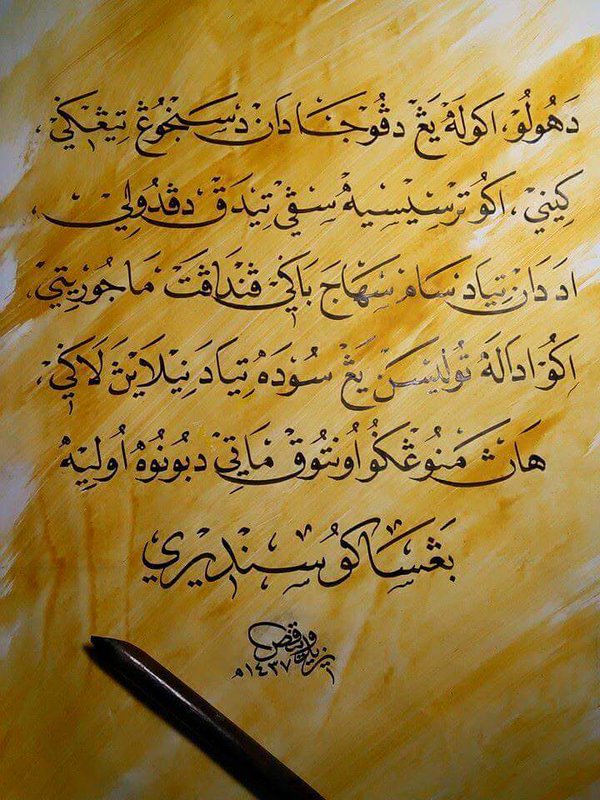 دهولو، اكوله يڠ دڤوجا دان دسنجوڠ تيڠكي،
كيني، اكو ترسيسيه سڤي تيدق دڤدولي،
اد دان تياد سام سهاج باكي ڤنداڤت ماجوريتي،
اكو اداله توليسن يڠ سوده تياد نيلاين لاكي،
هاڽ منوڠكو اونتوق ماتي دبونوه اوليه
بڠساكو سنديري
١٤٣٧ه‍